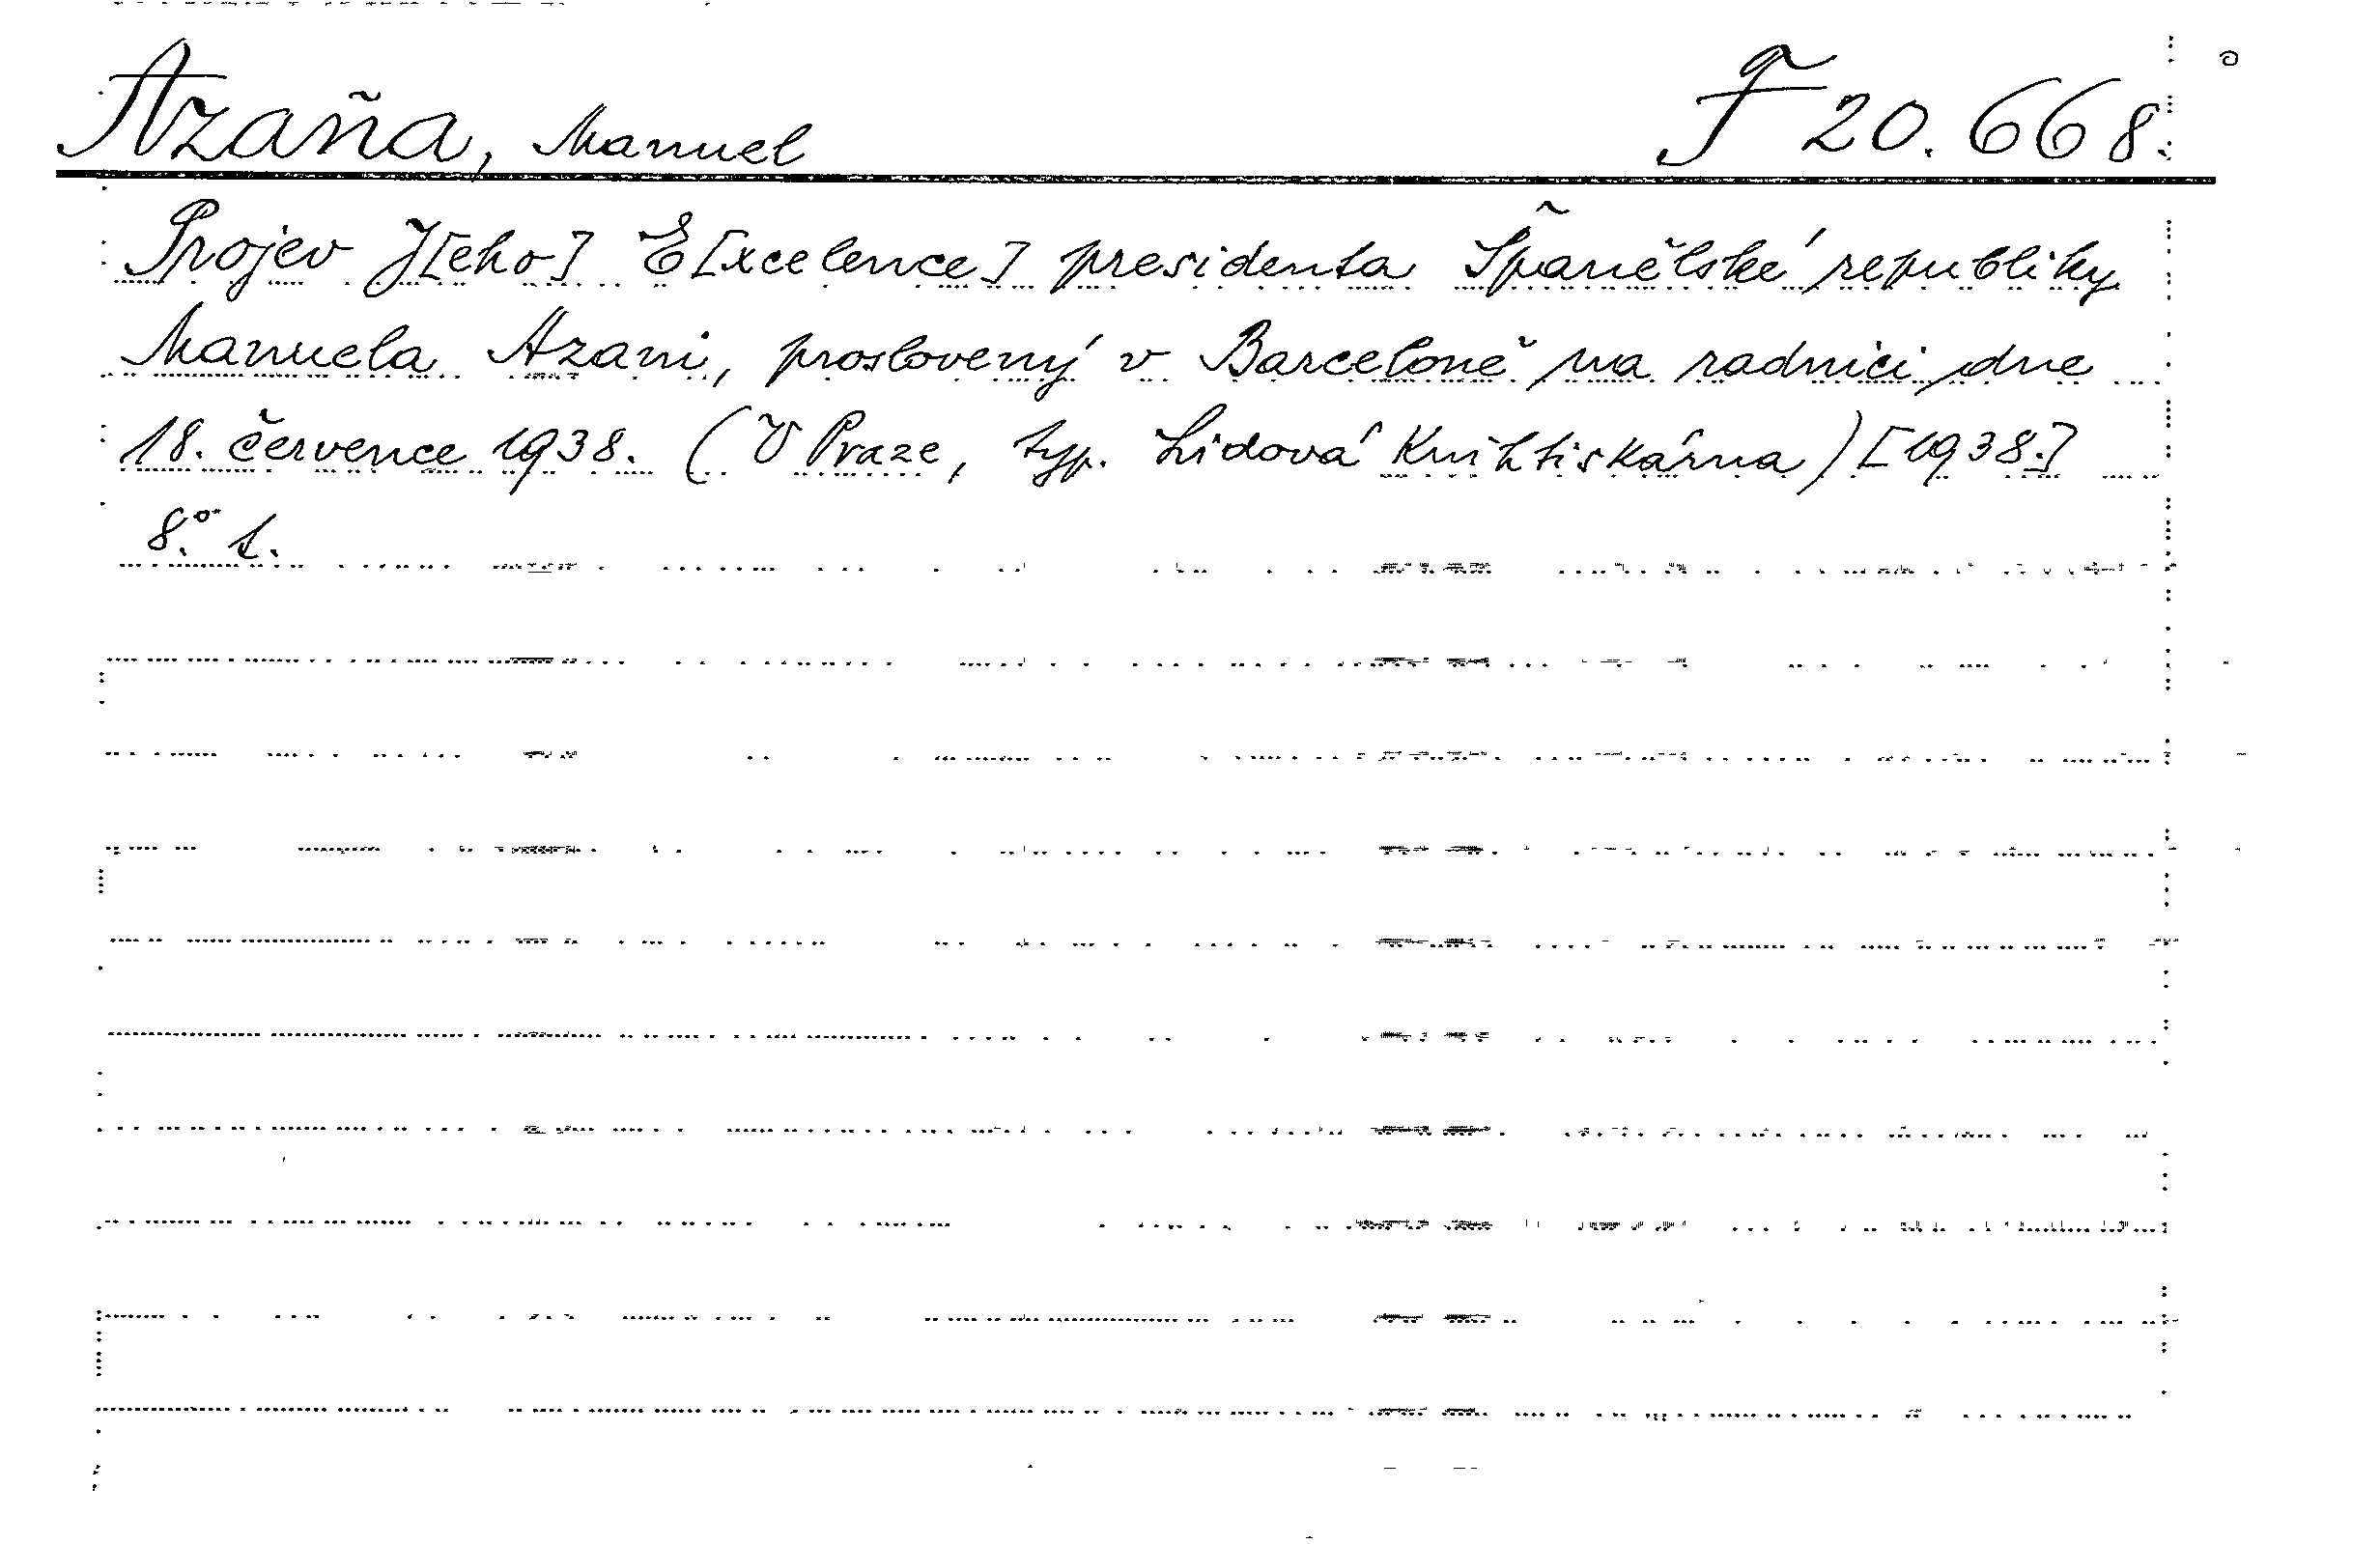 Azaña, Manuel F 20.668.
Projev J[eho] E[xcelence] presidenta Španělské republiky
Manuela Azani, proslovený v Barceloně na radnici dne
18. července 1938. (V Praze, typ. Lidová Knihtiskárna) [1938.]
8.° 1.